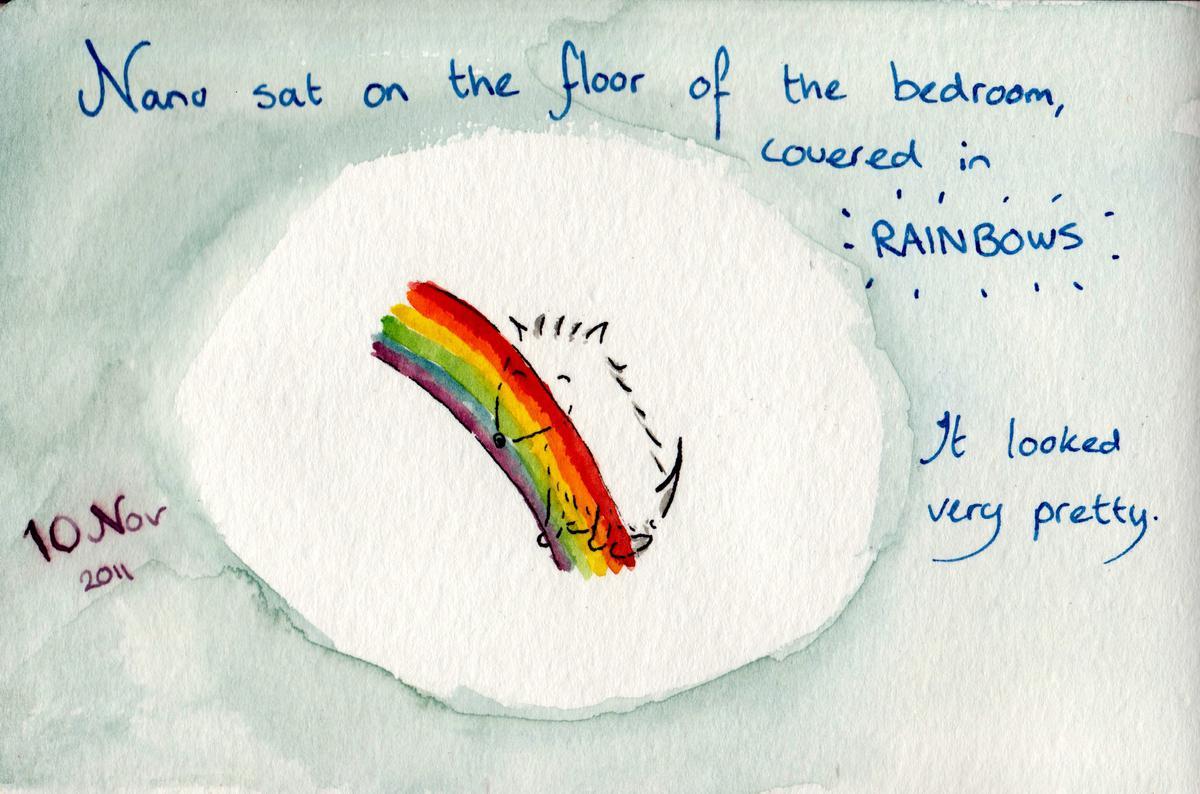 Nano sat on the floor of the bedroom,
covered in
RAINBOWS
It looked
very pretty.
10 Nov
2011